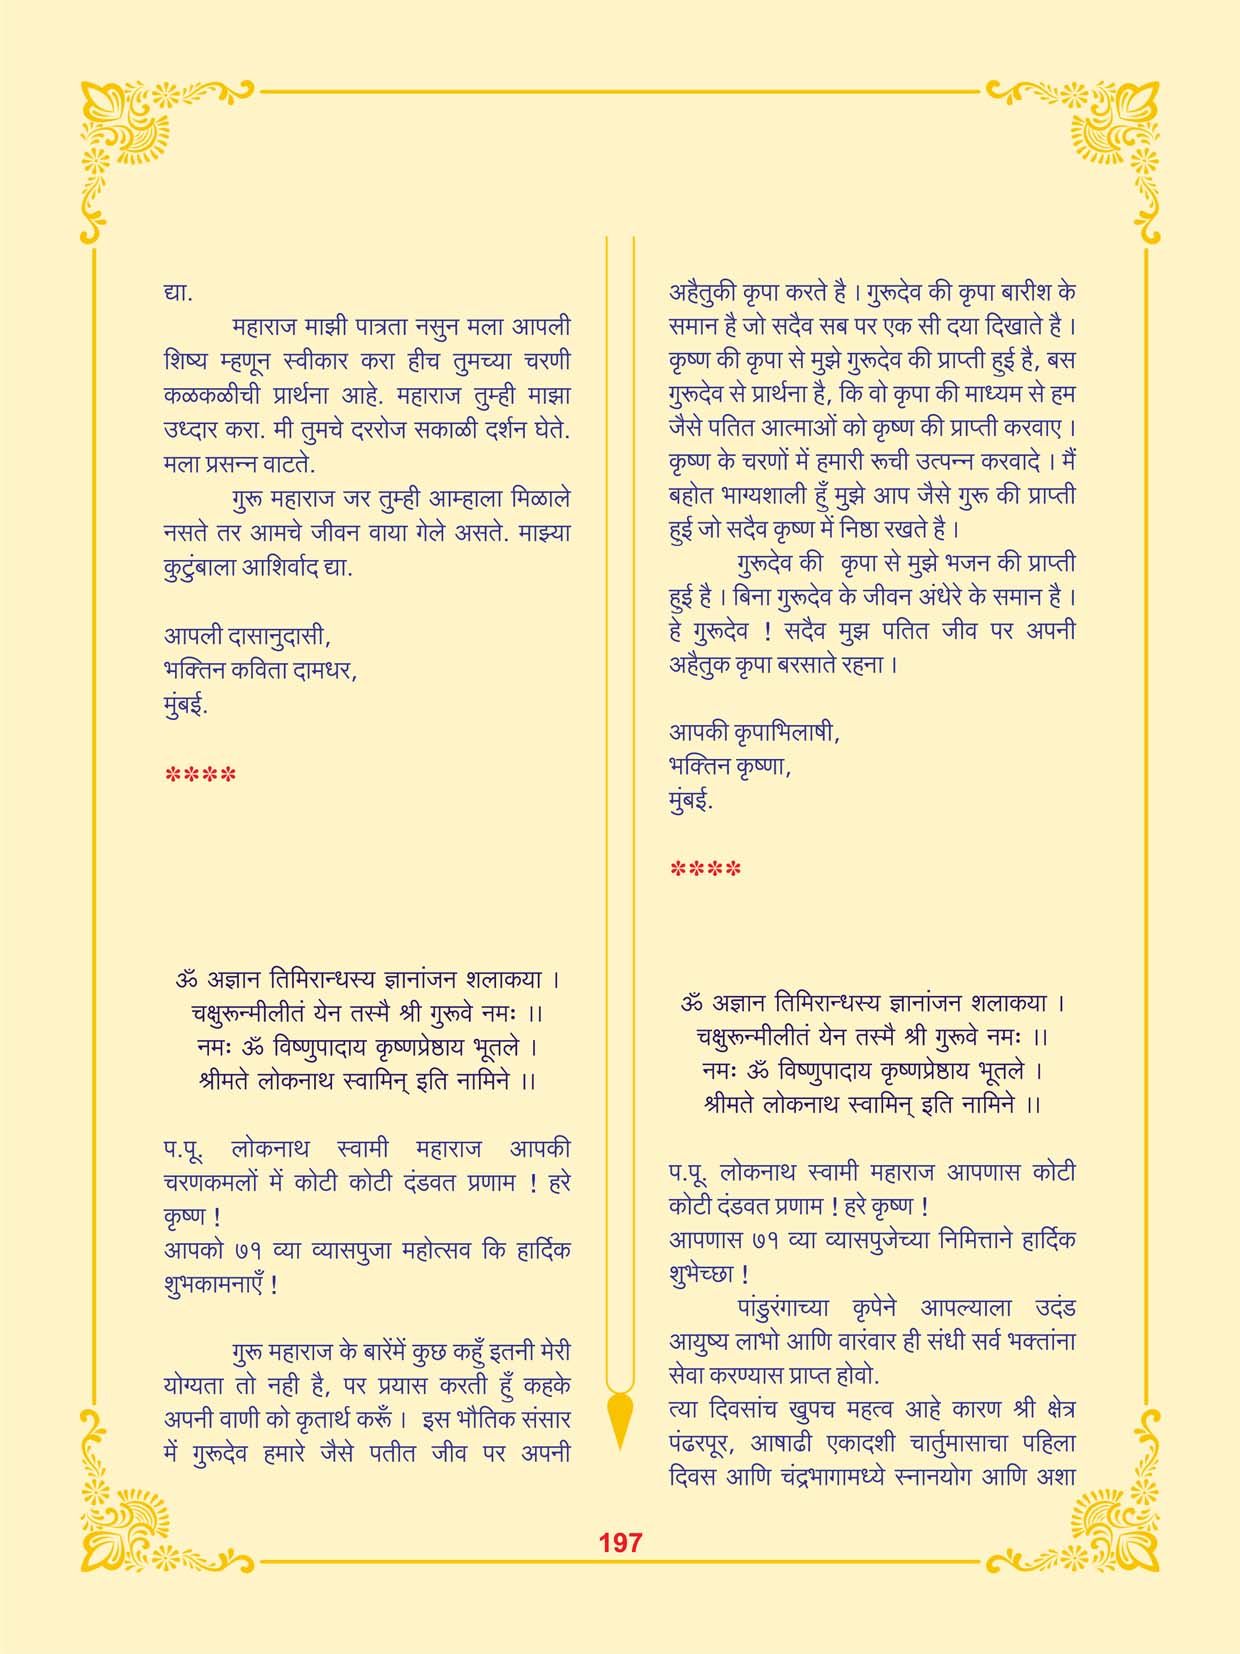 द्या.
महाराज माझी पात्रता नसुन मला आपली
शिष्य म्हणून स्वीकार करा हीच तुमच्या चरणी
कळकळीची प्रार्थना आहे. महाराज तुम्ही माझा
उध्दार करा. मी तुमचे दररोज सकाळी दर्शन घेते.
मला प्रसन्न वाटते.
गुरू महाराज जर तुम्ही आम्हाला मिळाले
नसते तर आमचे जीवन वाया गेले असते. माझ्या
कुटुंबाला आशिर्वाद द्या.
आपली दासानुदासी,
भक्तिन कविता दामधर,
मुंबई.
****
ॐ अज्ञान तिमिरान्धस्य ज्ञानांजन शलाकया ।
चक्षुरून्मीलीतं येन तस्मै श्री गुरूवे नमः ।।
नमः ॐ विष्णुपादाय कृष्णप्रेष्ठाय भूतले ।
श्रीमते लोकनाथ स्वामिन् इति नामिने ।।
प.पू. लोकनाथ स्वामी महाराज आपकी
चरणकमलों में कोटी कोटी दंडवत प्रणाम ! हरे
कृष्ण !
आपको ७१ व्या व्यासपुजा महोत्सव कि हार्दिक
शुभकामनाएँ !
गुरू महाराज के बारेंमें कुछ कहुँ इतनी मेरी
योग्यता तो नही है, पर प्रयास करती हुँ कहके
अपनी वाणी को कृतार्थ करूँ । इस भौतिक संसार
में गुरूदेव हमारे जैसे पतीत जीव पर अपनी
अहैतुकी कृपा करते है । गुरूदेव की कृपा बारीश के
समान है जो सदैव सब पर एक सी दया दिखाते है ।
कृष्ण की कृपा से मुझे गुरूदेव की प्राप्ती हुई है, बस
गुरूदेव से प्रार्थना है, कि वो कृपा की माध्यम से हम
जैसे पतित आत्माओं को कृष्ण की प्राप्ती करवाए ।
कृष्ण के चरणों में हमारी रूची उत्पन्न करवादे । मैं
बहोत भाग्यशाली हुँ मुझे आप जैसे गुरू की प्राप्ती
हुई जो सदैव कृष्ण में निष्ठा रखते है ।
गुरूदेव की कृपा से मुझे भजन की प्राप्ती
हुई है । बिना गुरूदेव के जीवन अंधेरे के समान है ।
हे गुरूदेव ! सदैव मुझ पतित जीव पर अपनी
अहैतुक कृपा बरसाते रहना ।
आपकी कृपाभिलाषी,
भक्तिन कृष्णा,
मुंबई.
****
ॐ अज्ञान तिमिरान्धस्य ज्ञानांजन शलाकया ।
चक्षुरून्मीलीतं येन तस्मै श्री गुरूवे नमः ।।
नमः ॐ विष्णुपादाय कृष्णप्रेष्ठाय भूतले ।
श्रीमते लोकनाथ स्वामिन् इति नामिने ।।
प.पू. लोकनाथ स्वामी महाराज आपणास कोटी
कोटी दंडवत प्रणाम ! हरे कृष्ण !
आपणास ७१ व्या व्यासपुजेच्या निमित्ताने हार्दिक
शुभेच्छा !
पांडुरंगाच्या कृपेने आपल्याला उदंड
आयुष्य लाभो आणि वारंवार ही संधी सर्व भक्तांना
सेवा करण्यास प्राप्त होवो.
त्या दिवसांच खुपच महत्व आहे कारण श्री क्षेत्र
पंढरपूर, आषाढी एकादशी चार्तुमासाचा पहिला
दिवस आणि चंद्रभागामध्ये स्नानयोग आणि अशा
197